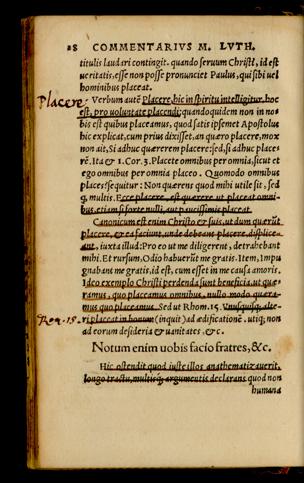 28 COMMENTARIVS M. LVTH.
titulis laudari contingit. quando seruum Christi, id est
ueritatis, esse non posse pronunciet Paulus, qui sibi uel
hominibus placeat.
Placere.
Verbum autē Placere, hic in spiritu intelligitur, hoc
est, pro uoluntate placendi: quandoquidem non in no
bis est quibus placeamus, quod satis ipsemet Apostolus
hic explicat, cum prius dixisset, an quæro placere, mox
non ait, Si adhuc quærerem placere: sed, si adhuc place=
rē. Ita & 1. Cor. 3. Placete omnibus per omnia, sicut et
ego omnibus per omnia placeo. Quomodo omnibus
places? sequitur: Non quærens quod mihi utile sit, sed
q̃ multis. Ecce placere, est quærere ut placeat omni-
bus, etiam si forte nulli, aut paucissimis placeat.
Canonicum est enim Christo & suis, ut dum quærūt
placere, & ea faciunt, unde debeant placere, displice=
ant, iuxta illud: Pro eo ut me diligerent, detrahebant
mihi. Et rursum, Odio habuerūt me gratis. Item, Impu
gnabant me gratis, id est, cum esset in me causa amoris.
Ideo exemplo Christi perdenda sunt beneficia, ut quæ=
ramus, quo placeamus omnibus, nullo modo quæra=
mus quo placeamus. Sed ut Rhom. 15. Vnusquisq; alte-
Ro. 15.
ri placeat in bonum (inquit) ad ædificationē. utiq; non
ad eorum desideria & uanitates, &c.
Notum enim uobis facio fratres, &c.
Hic ostendit quod iuste illos anathematizauerit,
longo tractu, multisq; argumentis declarans quod non
humana